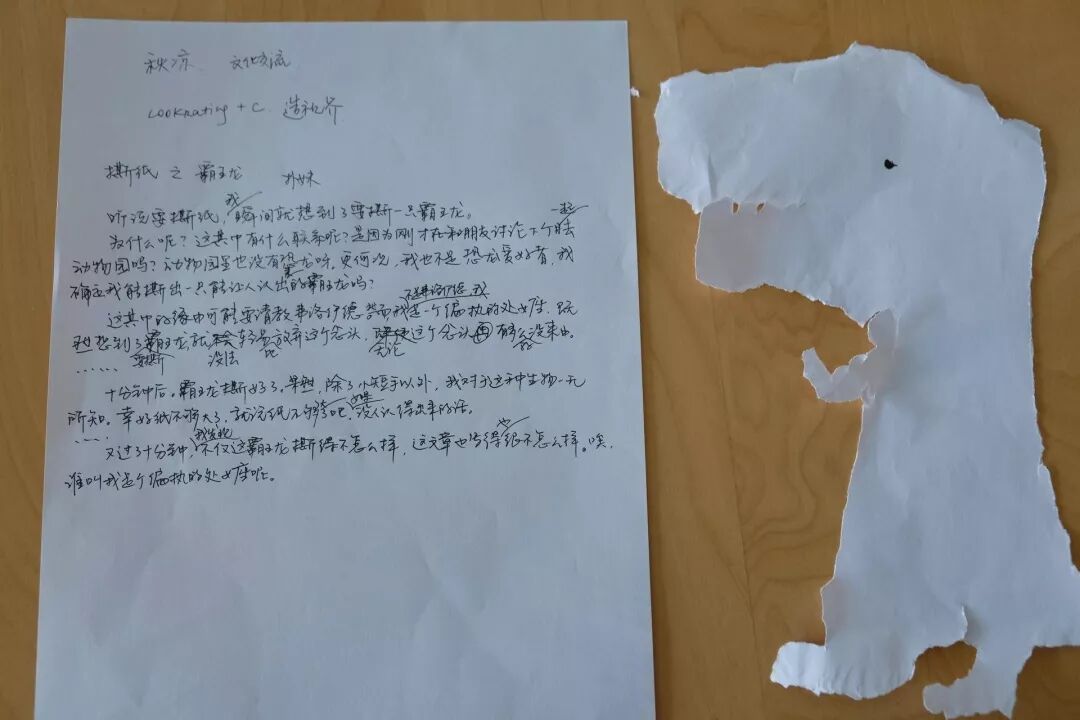 秋凉 文化交流
cooknating + C 造视界
撕纸 之 霸王龙 孙妹
听说要撕纸，我瞬间就想到了要撕一只霸王龙。
为什么呢？这其中有什么联系呢？是因为刚才在和朋友讨论下个月一起去
动物园吗？动物园里也没有恐龙呀。更何况，我也不是恐龙爱好者，我
确定我能撕出一只能让人认出的霸王龙吗？
这其中的缘由可能要请教弗洛伊德 我是一个偏执的处女座，既
想到了要撕霸王龙，就没法轻易放弃这个念头，无论这个念头有多么没来由。
……
十分钟后。霸王龙撕好了。果然，除了小短手以外，我对于这种生物一无
所知。幸好纸不够大了，就说纸不够 吧，没人认得出来的话。
……
又过了十分钟，我发现不仅这霸王龙撕得不怎么样，这文章也写得很不怎么样。唉，
谁叫我是个偏执的处女座呢。